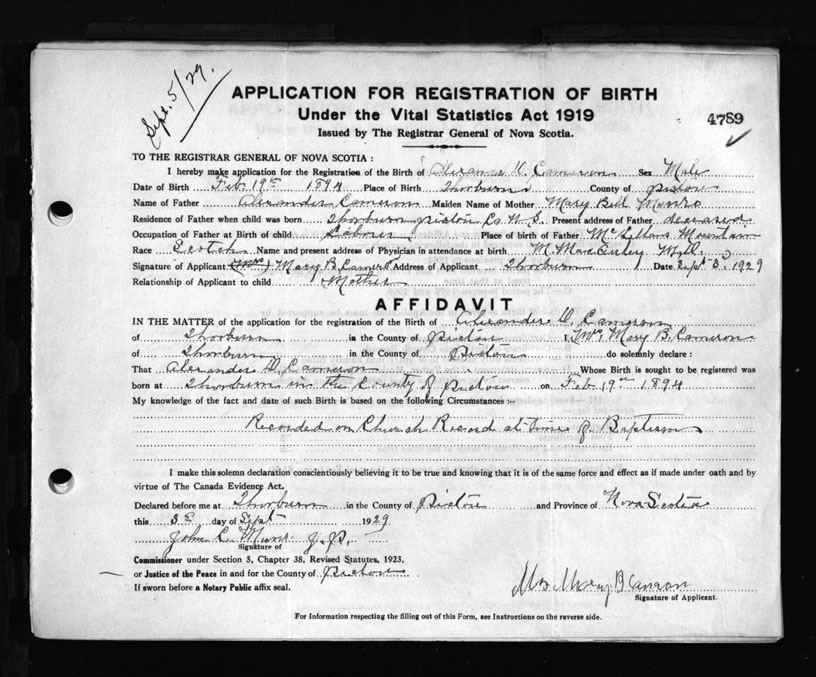 Sept. 5/29.
APPLICATION FOR REGISTRATION OF BIRTH
Under the Vital Statistics Act 1919
4789
Issued by The Registrar General of Nova Scotia.
TO THE REGISTRAR GENERAL OF NOVA SCOTIA :
I hereby make application for the Registration of the Birth of D. Cameron Sex Male
Date of Birth Feb. 19th 1894 Place of Birth Thorburn County of Pictou
Name of Father Alexander Cameron Maiden Name of Mother Mary Bell Munro
Residence of Father when child was born Thorburn Pictou Co. N. S. Present address of Father deceased
Occupation of Father at Birth of child Laborer Place of birth of Father Mountain
Race Scotch Name and present address of Physician in attendance at birth M.
Signature of Applicant (Mrs) Mary B. Cameron Address of Applicant Thorburn Date Sept 3 1929
Relationship of Applicant to child Mother
AFFIDAVIT
IN THE MATTER of the application for the registration of the Birth of Alexander D. Cameron
of Thorburn in the County of Pictou I, Mrs Mary B. Cameron
of Thorburn in the County of Pictou do solemnly declare :
That Alexander D. Cameron Whose Birth is sought to be registered was
born at Thorburn in the County of Pictou on Feb. 19th 1894
My knowledge of the fact and date of such Birth is based on the following Circumstances :-
Recorded on Church Record at time of Baptism
I make this solemn declaration conscientiously believing it to be true and knowing that it is of the same force and effect as if made under oath and by
virtue of The Canada Evidence Act.
Declared before me at Thorburn in the County of Pictou and Province of Nova Scotia
this 3rd day of Sept 1929
John Munro J. P.
Signature of
Commissioner under Section 5, Chapter 38, Revised Statutes, 1923,
or Justice of the Peace in and for the County of Pictou
If sworn before a Notary Public affix seal.
Mrs Mary B Cameron
Signature of Applicant.
For Information respecting the filling out of this Form, see Instructions on the reverse side.